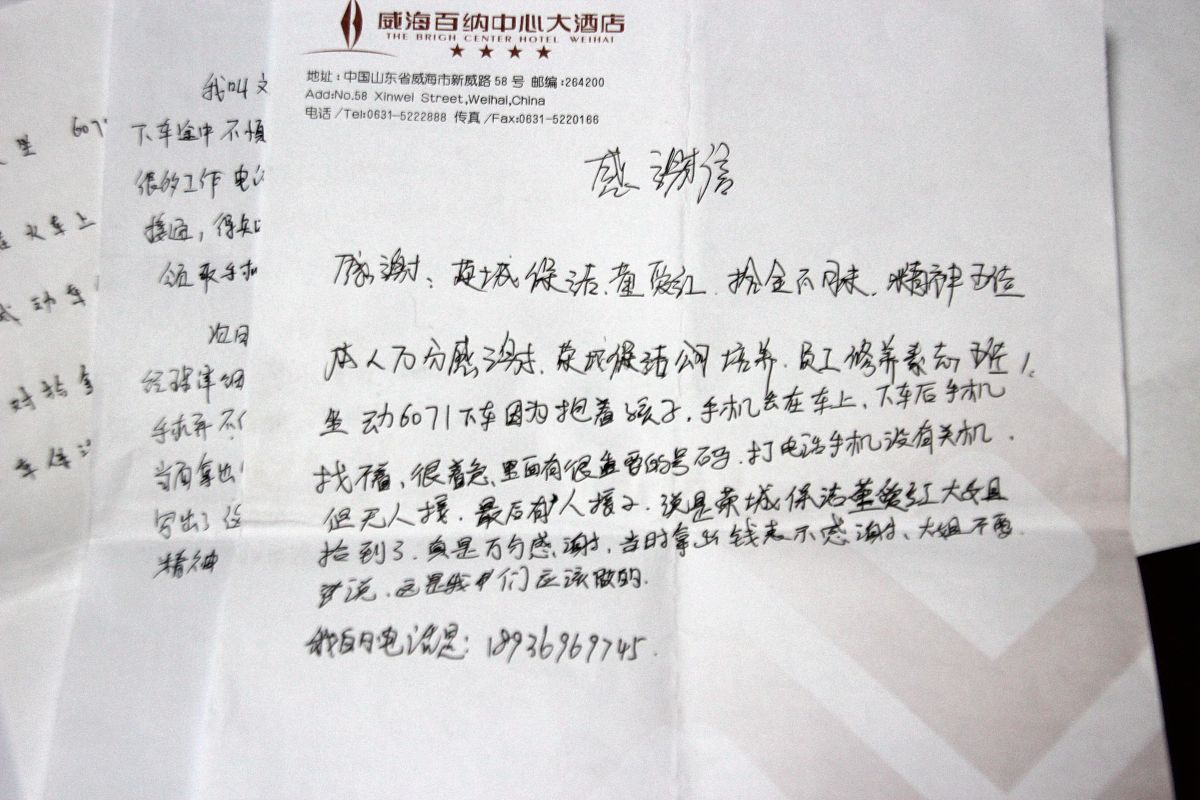 威海百纳中心大酒店
THE BRIGH CENTER HOTEL WEIHAI
地址:中国山东省威海市新威路58号 邮编:264200
Add:No.58 Xinwei Street,Weihai,China
电话/Tel:0631-5222888 传真/Fax:0631-5220166
感谢信
感谢:荣城保洁、董爱红、拾金不昧、精神可佳
本人万分感谢、荣城保洁公司培养、员工修养素质
坐动6071下车因为抱着孩子,手机丢在车上、下车后手机
找不着,很着急、里面有很重要的号码、打电话手机没有关机、
但无人接、最后有人接了、说是荣城保洁董爱红大姐
捡到了、真是万分感谢、当时拿出钱表示感谢、大姐不要
说、这是我们应该做的.
我的电话是:18936969745.
我叫文
下车途中不慎
接通,得知
领取手机
次日
经理详细
手机弄不
当面拿出
写出了
精神
607
火车上
动车